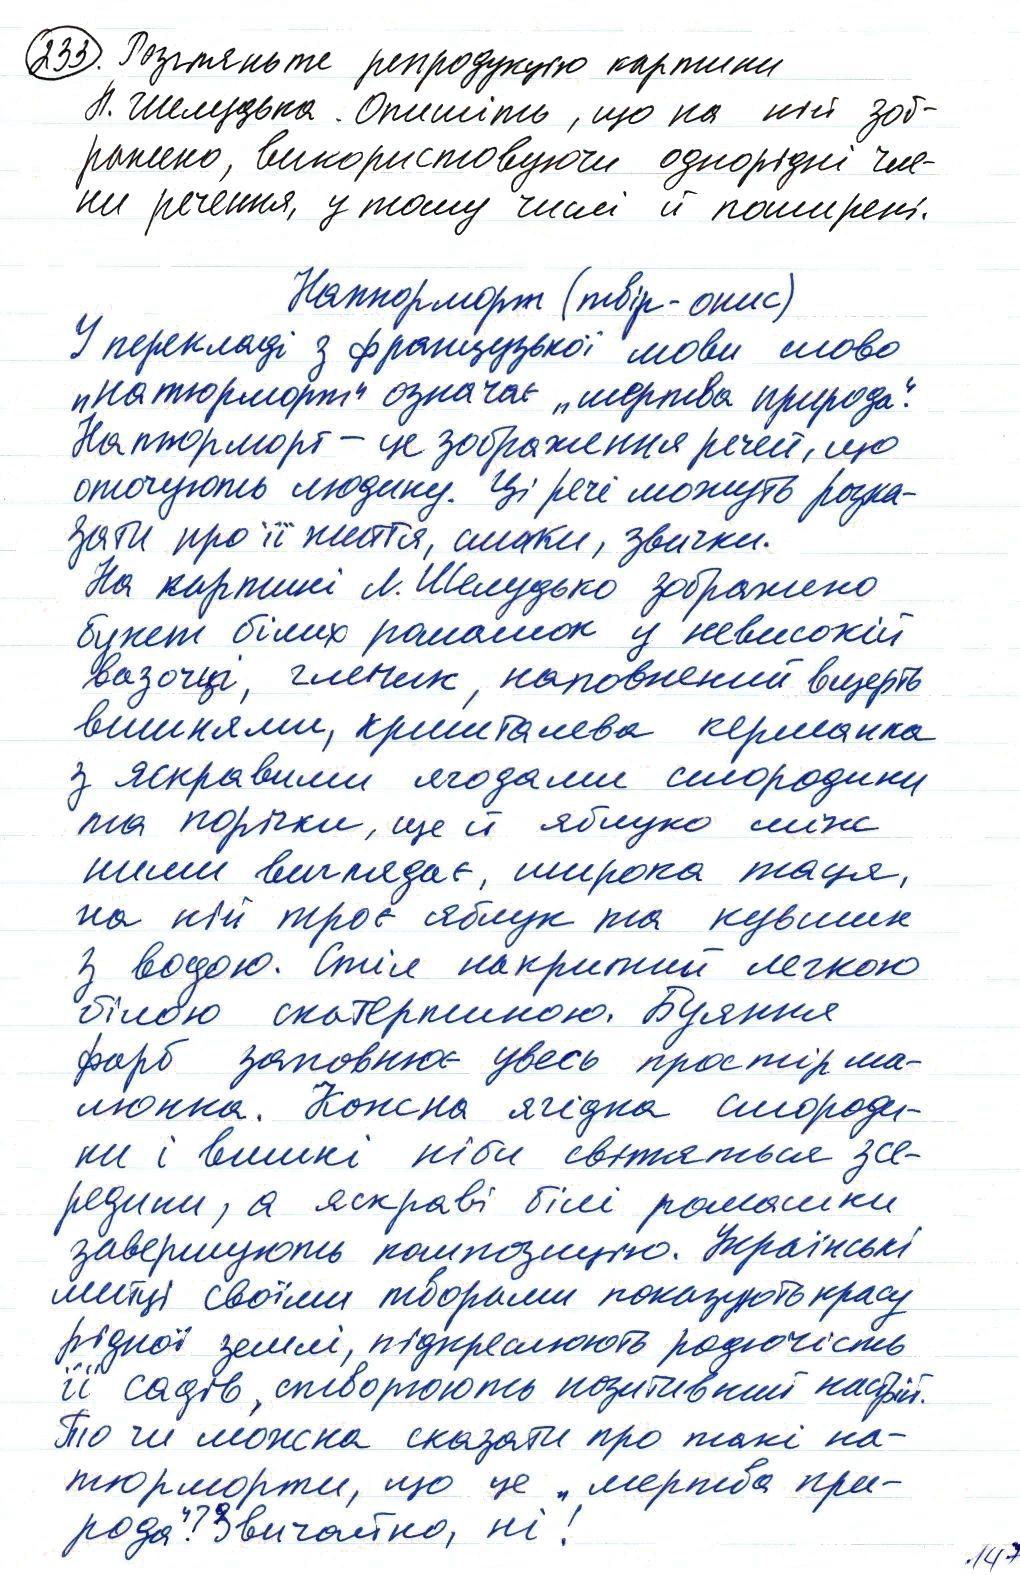 233. Розгляньте репродукцію картини
Л. Шелудька. Опишіть, що на ній зоб-
ражено, використовуючи однорідні чле-
ни речення, у тому числі й поширені.
Натюрморт (твір-опис)
У перекладі з французької мови слово
„натюрморт" означає „мертва природа".
Натюрморт – це зображення речей, що
оточують людину. Ці речі можуть розка-
зати про її життя, смаки, звички.
На картині Л. Шелудько зображено
букет білих ромашок у невисокій
вазочці, глечик, наповнений вщерть
вишнями, кришталева
з яскравими ягодами смородини
та порічки, ще й яблуко між
ними виглядає, широка таця,
на ній троє яблук та кувшин
з водою. Стіл накритий легкою
білою скатертиною. Буяння
фарб заповнює увесь простір ма-
люнка. Кожна ягідка смороди-
ни і вишні ніби світяться зсе-
редини, а яскраві білі ромашки
завершують композицію. Українські
митці своїми творами показують красу
рідної землі, підкреслюють родючість
її садів, створюють позитивний настрій.
То чи можна сказати про такі на-
тюрморти, що це „мертва при-
рода"? Звичайно, ні!
147